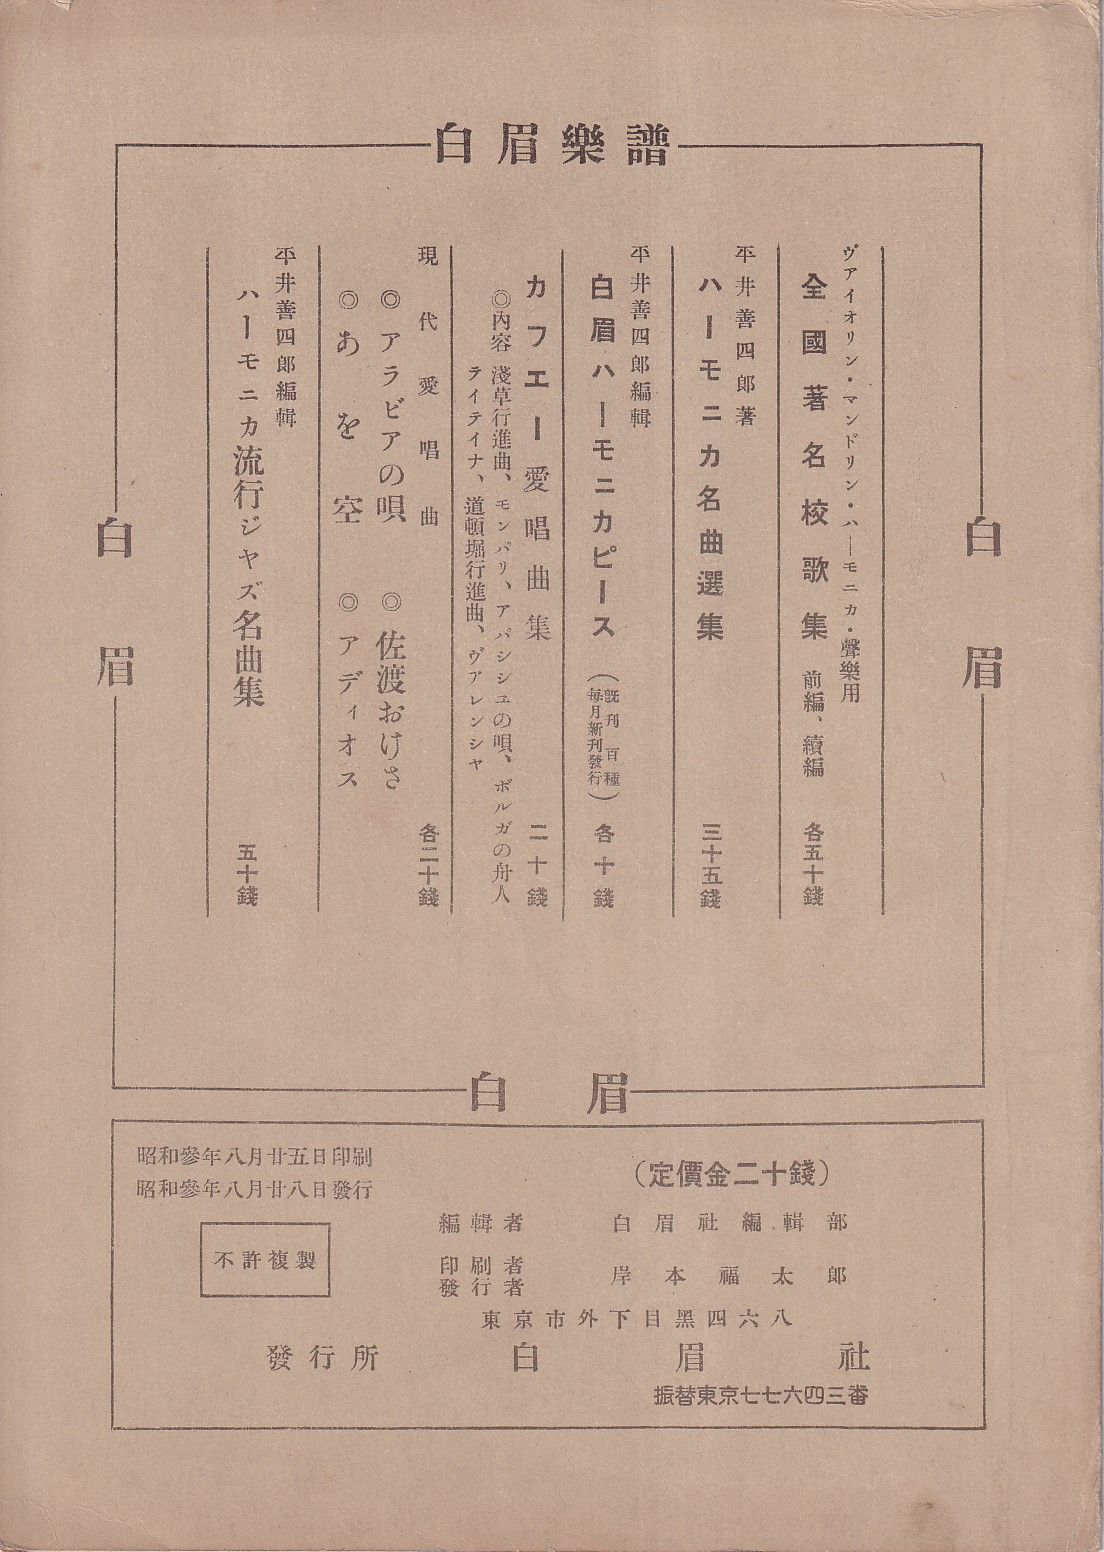 白眉樂譜
ヴアイオリン・マンドリン・ハーモニカ・聲樂用
全國著名校歌集 前編、續編 各五十錢
平井善四郎著
ハーモニカ名曲選集 三十五錢
平井善四郎編輯
白眉ハーモニカピース (既刊百種 每月新刊發行) 各十錢
カフエー愛唱曲集 二十錢
◎內容 淺草行進曲、モンパリ、アパシシエの唄、ボルガの舟人
ライテイナ、道頓堀行進曲、ヴアレンシヤ
現代愛唱曲 各二十錢
◎アラビアの唄 ◎佐渡おけさ
◎あを空 ◎アディオス
平井善四郎編輯
ハーモニカ流行ジャズ名曲集 五十錢
白眉
白眉
白眉
昭和參年八月廿五日印刷
昭和參年八月廿八日發行
不許複製
(定價金二十錢)
編輯者 白眉社編輯部
印刷者
發行者 岸本福太郎
東京市外下目黑四六八
發行所 白眉社
振替東京七七六四三番